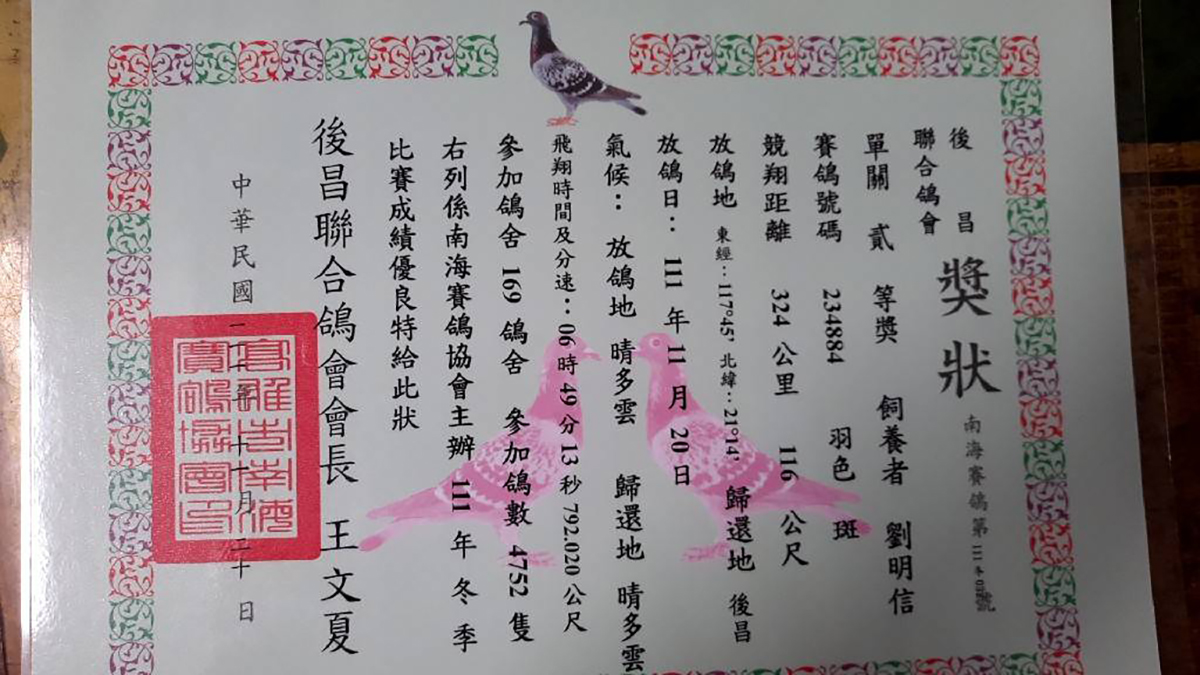 後昌
聯合鴿會
獎狀
南海賽鴿第111年
號
單關 貳 等獎 飼養者 劉明信
賽鴿號碼 234884 羽色 斑
競翔距離 324 公里 116 公尺
放鴿地 東經:117°45' 北緯:21°14' 歸還地 後昌
放鴿日: 111 年 11 月 20 日
氣候: 放鴿地 晴多雲 歸還地 晴多雲
飛翔時間及分速:06 時 49 分 13 秒 792.020 公尺
參加鴿舍 169 鴿舍 參加鴿數 4752 隻
右列係南海賽鴿協會主辦 111 年 冬 季
比賽成績優良特給此狀
後昌聯合鴿會會長 王文夏
中華民國一一一年 十一月 二十 日
高雄市南海
賽鴿協會印